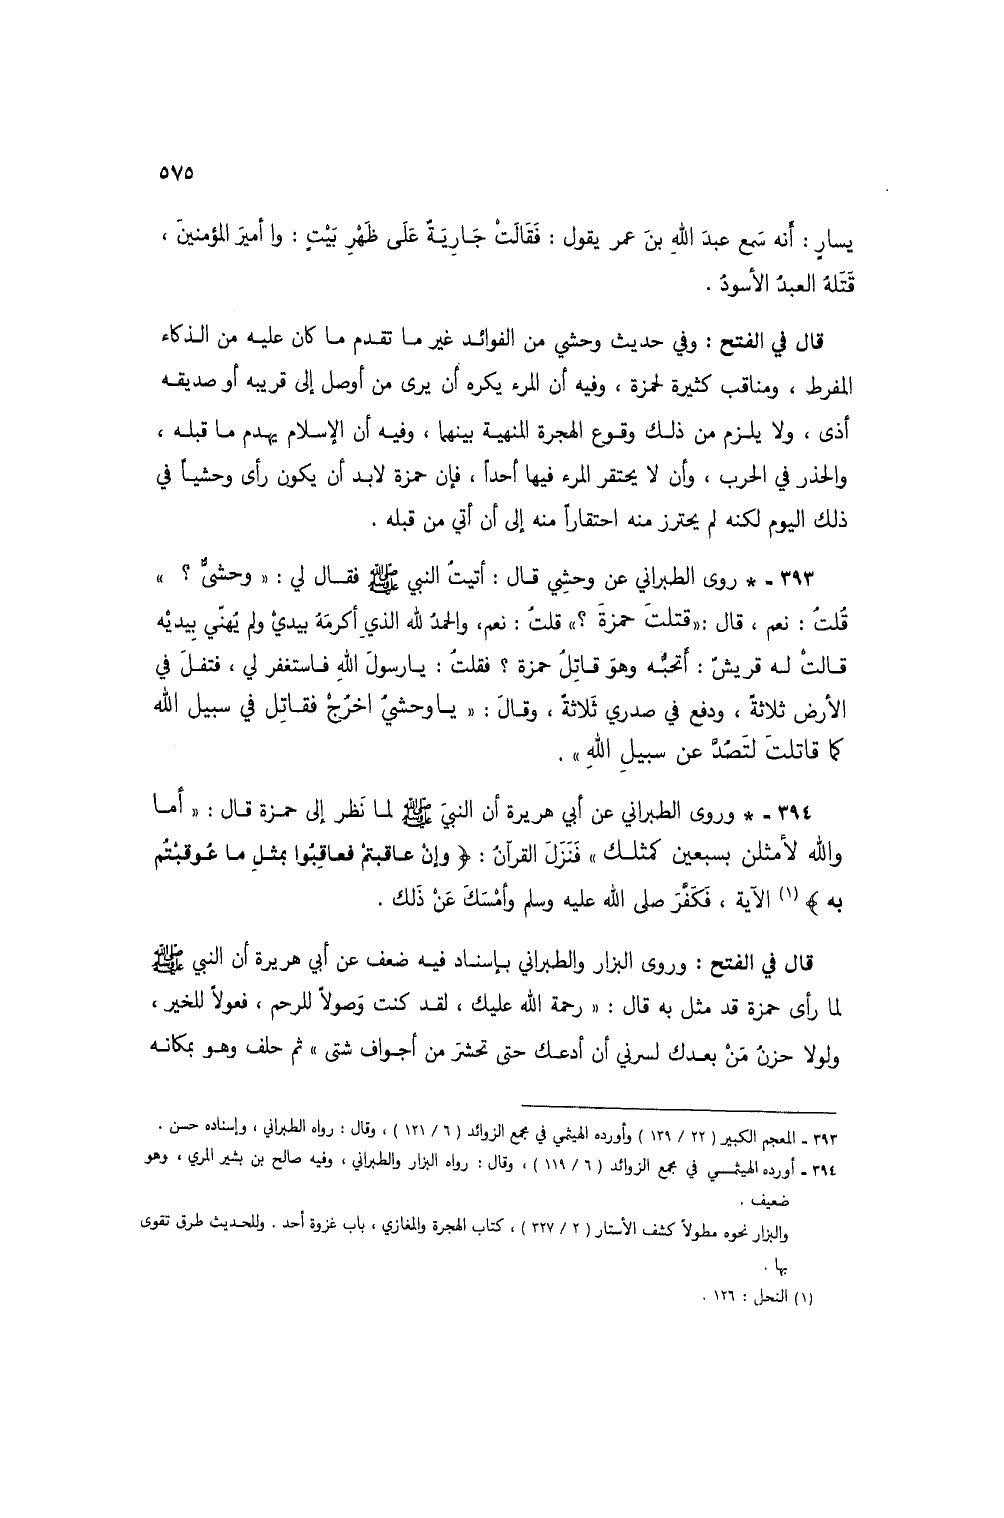 ٥٧٥
يسارٍ : أَنه سَمع عبدَ اللهِ بنَ عمر يقول : فَقَالَتْ جَارِيَةٌ عَلَى ظَهْرِ بَيْتٍ : وا أميرَ المؤمنينَ ،
قَتَلَهُ العبدُ الأسودُ .
قال في الفتح : وفي حديث وحشي من الفوائد غير ما تقدم ما كان عليه من الذكاء
المفرط ، ومناقب كثيرة لحمزة ، وفيه أن المرء يكره أن يرى من أوصل إلى قريبه أو صديقه
أذى ، ولا يلزم من ذلك وقوع الهجرة المنهية بينهما ، وفيه أن الإسلام يهدم ما قبله ،
والحذر في الحرب ، وأن لا يحتقر المرء فيها أحداً ، فإن حمزة لابد أن يكون رأى وحشياً في
ذلك اليوم لكنه لم يحترز منه احتقاراً منه إلى أن أتي من قبله .
٣٩٣ - * روى الطبراني عن وحشي قال : أتيتُ النبي ﷺ فقال لي : « وحشيٌّ ؟ »
قُلتُ : نعم ، قال :«قتلتَ حمزةَ ؟» قلتُ : نعم، والحمدُ لله الذي أكرمَهُ بيديْ ولم يُهنّي بِيديْه
قالتْ له قريشٌ : أَتحبُّه وهوَ قاتِلُ حمزة ؟ فقلتُ : يارسولَ اللهِ فاستغفر لي ، فتفلَ في
الأرض ثلاثةً ، ودفع في صدري ثَلاثةً ، وقالَ : « ياوحشيُ اخرُجْ فقاتِل في سبيل الله
كما قاتلتَ لتَصُدَّ عن سبيلِ اللهِ » .
٣٩٤ - * وروى الطبراني عن أبي هريرة أن النبيَ ﷺ لما نَظر إلى حمزة قال : « أَما
والله لأمثلن بسبعين كمثلك » فَنَزَلَ القرآنُ : ﴿ وإنْ عاقبتمْ فعاقِبُوا بمثلِ ما عُوقبْتُم
به ﴾ (١) الآية ، فَكَفَّرَ صلى الله عليه وسلم وأمْسَكَ عَنْ ذَلك .
قال في الفتح : وروى البزار والطبراني بإسناد فيه ضعف عن أبي هريرة أن النبي ﷺ
لما رأى حمزة قد مثل به قال : « رحمة الله عليك ، لقد كنت وَصولاً للرحم ، فعولاً للخير ،
ولولا حزنُ مَنْ بعدك لسرني أن أدعك حتى تحشرَ من أجواف شتى » ثم حلف وهو بمكانه
٣٩٣ - المعجم الكبير ( ٢٢ / ١٣٩ ) وأورده الهيثمي في مجمع الزوائد ( ٦ / ١٢١ ) ، وقال : رواه الطبراني ، وإسناده حسن .
٣٩٤ - أورده الهيثمي في مجمع الزوائد ( ٦ / ١١٩ ) ، وقال : رواه البزار والطبراني ، وفيه صالح بن بشير المري ، وهو
ضعيف .
والبزار نحوه مطولاً كشف الأستار ( ٢ / ٣٢٧ ) ، كتاب الهجرة والمغازي ، باب غزوة أحد . وللحديث طرق تقوى
بها .
(١) النحل : ١٢٦ .